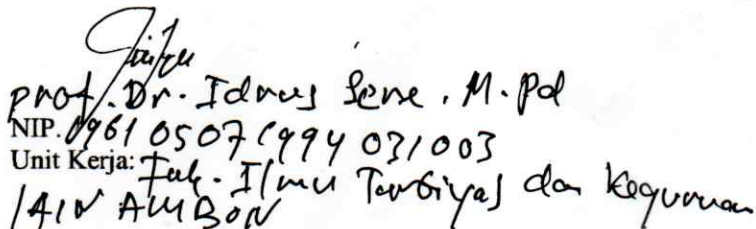 Prof. Dr. Idrus Sere, M.Pd
NIP. 19610507 1994 031003
Unit Kerja: Fak. Ilmu Tarbiyas dan Keguruan
IAIN AMBON